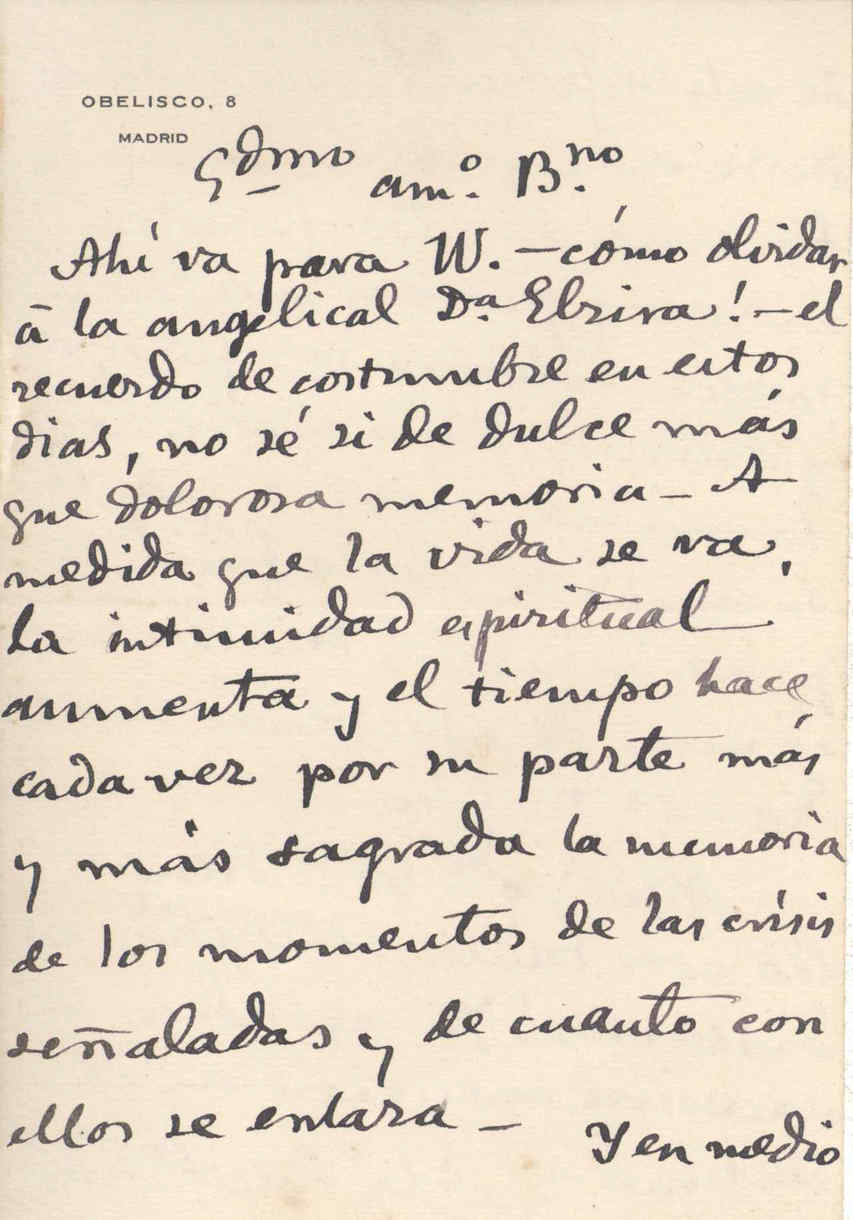 OBELISCO, 8
MADRID
Qdmo amº. Bno.
Ahí va para W. — cómo olvidar
á la angelical Dª. Elzira! — el
recuerdo de costumbre en estos
dias, no sé si de dulce más
que dolorosa memoria — A
medida que la vida se va,
la intimidad espiritual
aumenta y el tiempo hace
cada vez por su parte más
y más sagrada la memoria
de los momentos de las crisis
señaladas y de cuanto con
ellos se enlaza —
Y en medio